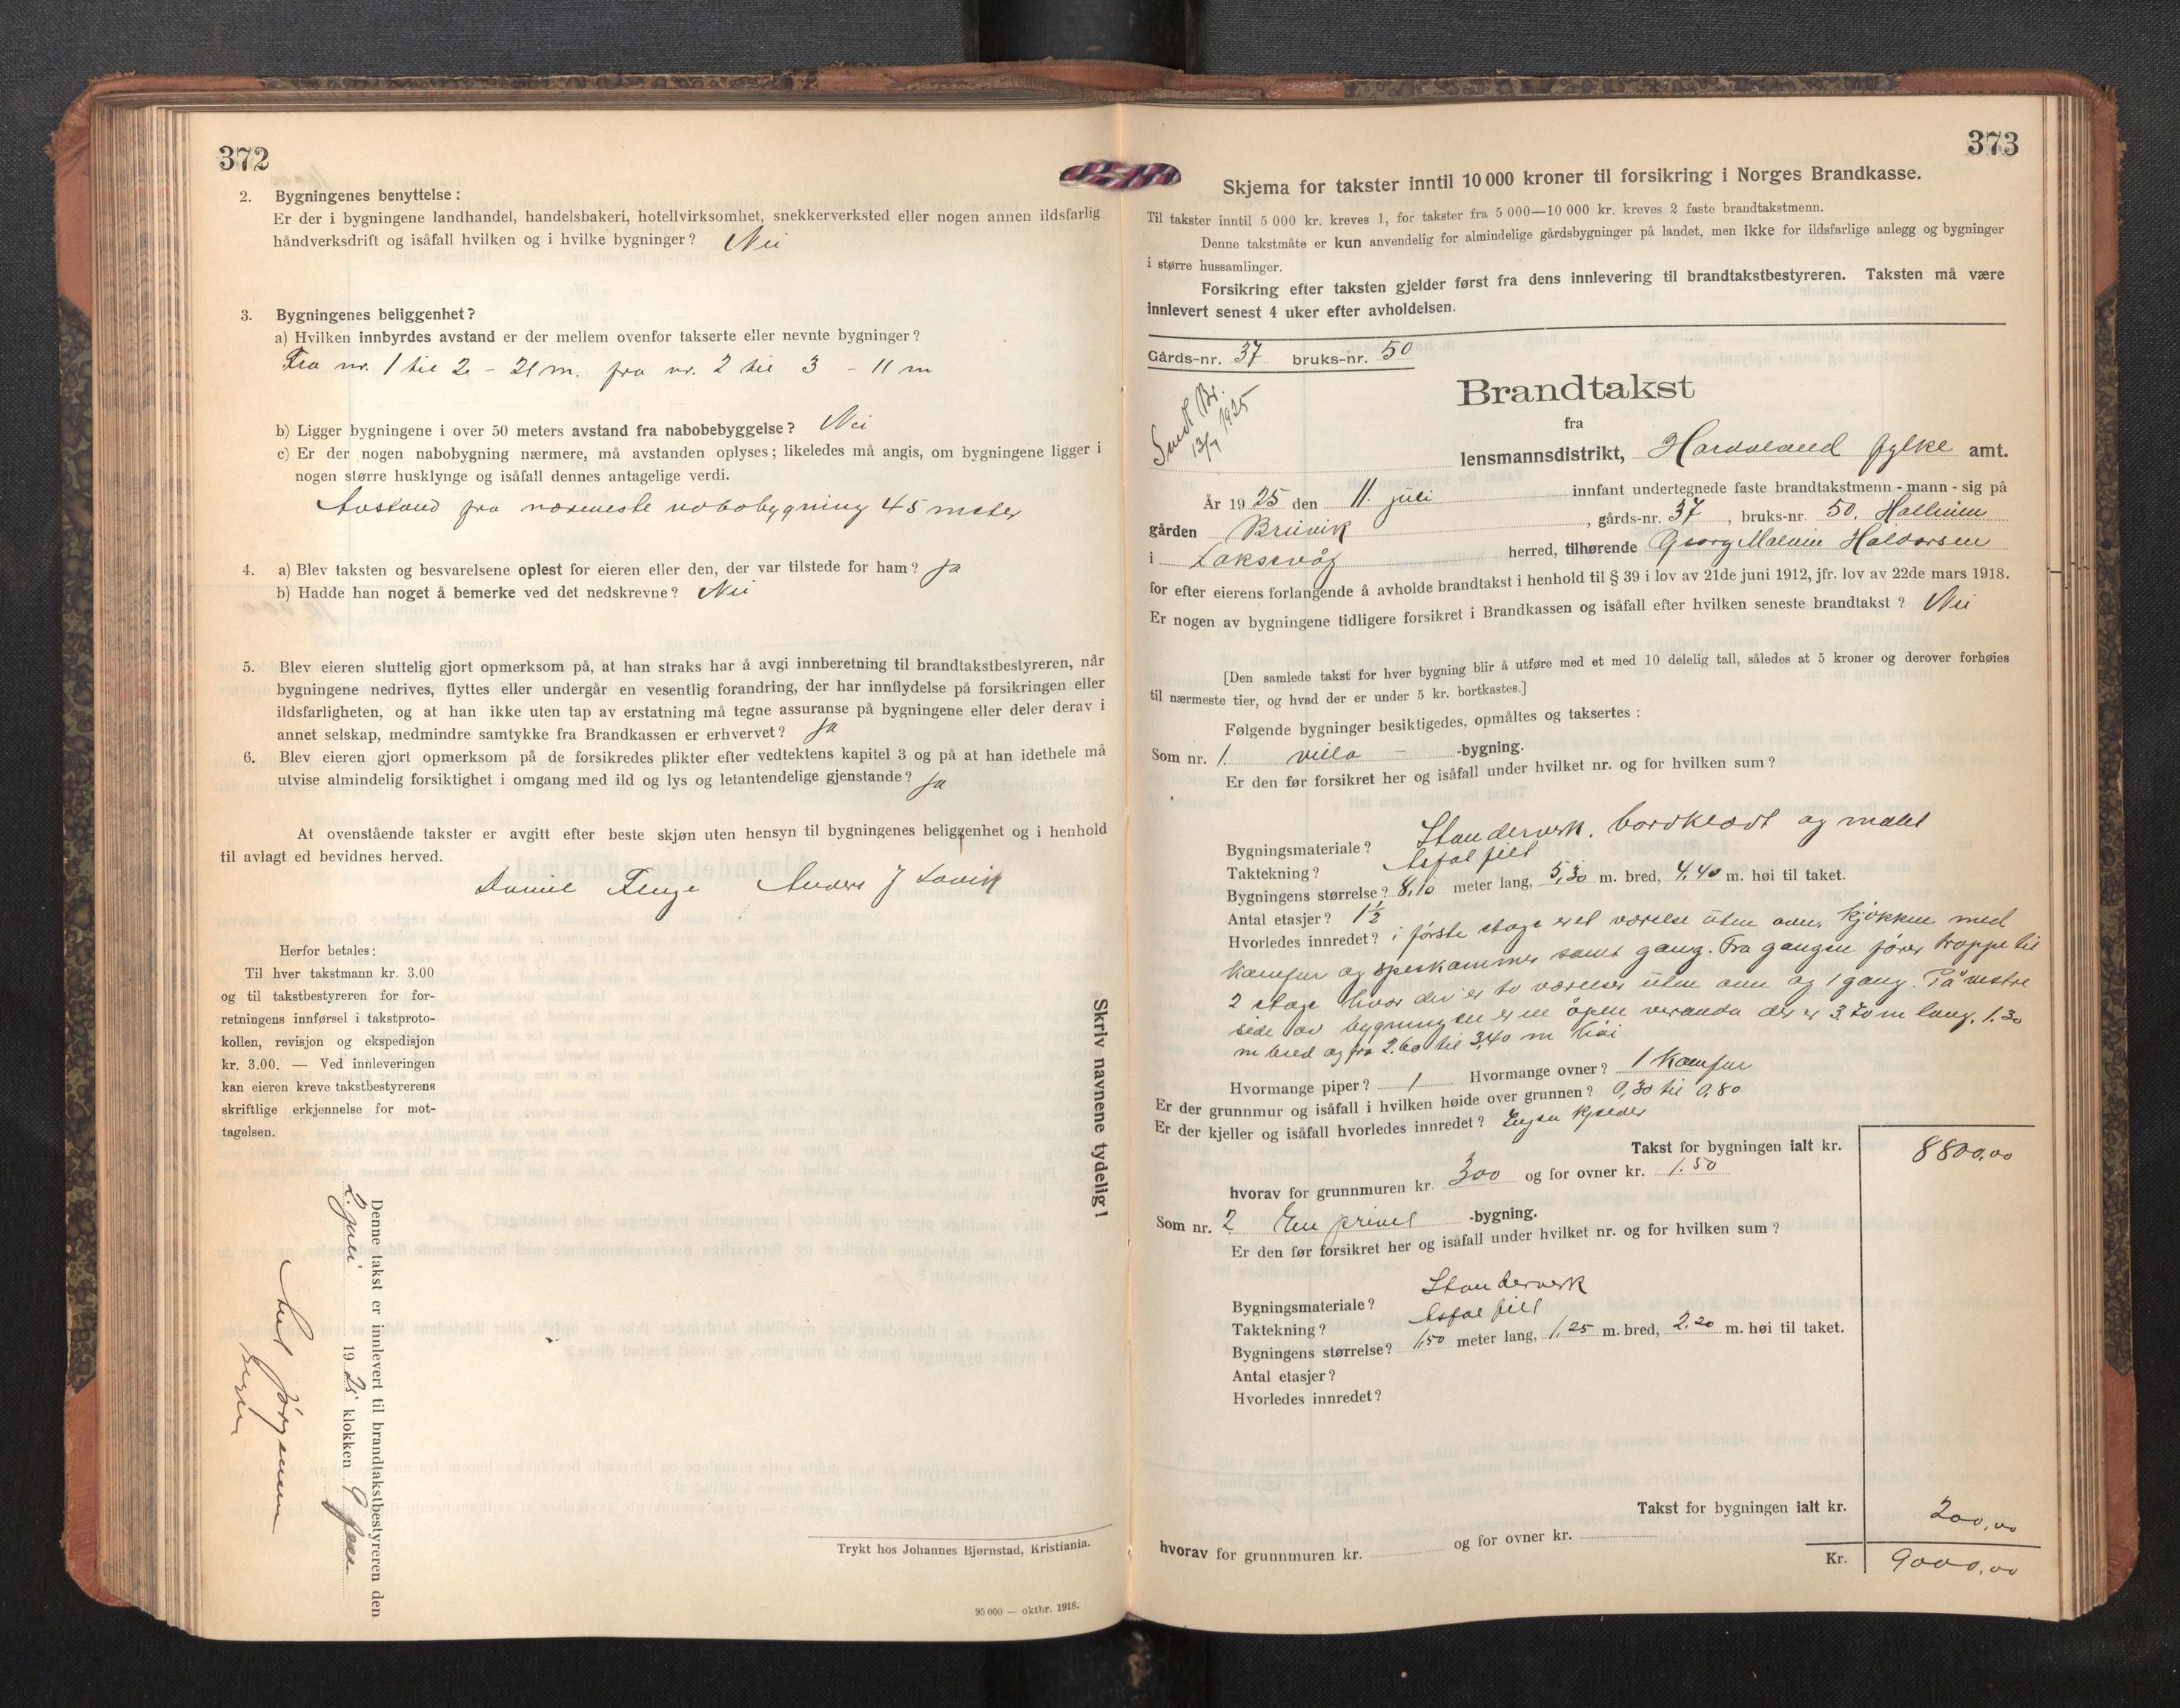 372
2. Bygningenes benyttelse:
Er der i bygningene landhandel, handelsbakeri, hotellvirksomhet, snekkerverksted eller nogen annen ildsfarlig
håndverksdrift og isåfall hvilken og i hvilke bygninger? Nei
3. Bygningenes beliggenhet?
a) Hvilken innbyrdes avstand er der mellem ovenfor takserte eller nevnte bygninger?
Fra nr. 1 til 2 - 21 m. fra nr. 2 til 3 - 11 m
b) Ligger bygningene i over 50 meters avstand fra nabobebyggelse? Nei
c) Er der nogen nabobygning nærmere, må avstanden oplyses; likeledes må angis, om bygningene ligger i
nogen større husklynge og isåfall dennes antagelige verdi.
Avstand fra nærmeste nabobygning 45 meter
4. a) Blev taksten og besvarelsene oplest for eieren eller den, der var tilstede for ham? ja
b) Hadde han noget å bemerke ved det nedskrevne? Nei
5. Blev eieren sluttelig gjort opmerksom på, at han straks har å avgi innberetning til brandtakstbestyreren, når
bygningene nedrives, flyttes eller undergår en vesentlig forandring, der har innflydelse på forsikringen eller
ildsfarligheten, og at han ikke uten tap av erstatning må tegne assuranse på bygningene eller deler derav i
annet selskap, medmindre samtykke fra Brandkassen er erhvervet? ja
6. Blev eieren gjort opmerksom på de forsikredes plikter efter vedtektens kapitel 3 og på at han idethele må
utvise almindelig forsiktighet i omgang med ild og lys og letantendelige gjenstande? ja
At ovenstående takster er avgitt efter beste skjøn uten hensyn til bygningenes beliggenhet og i henhold
til avlagt ed bevidnes herved.
Daniel Anders J
Herfor betales:
Til hver takstmann kr. 3.00
og til takstbestyreren for for-
retningens innførsel i takstproto-
kollen, revisjon og ekspedisjon
kr. 3.00. — Ved innleveringen
kan eieren kreve takstbestyrerens
skriftlige erkjennelse for mot-
tagelsen.
Skriv navnene tydelig!
Denne takst er innlevert til brandtakstbestyreren den
2. juli 1925 klokken 9
Jørgensen
Trykt hos Johannes Bjørnstad, Kristiania.
95 000 — oktbr. 1918.
373
Skjema for takster inntil 10 000 kroner til forsikring i Norges Brandkasse.
Til takster inntil 5 000 kr. kreves 1, for takster fra 5 000—10 000 kr. kreves 2 faste brandtakstmenn.
Denne takstmåte er kun anvendelig for almindelige gårdsbygninger på landet, men ikke for ildsfarlige anlegg og bygninger
i større hussamlinger.
Forsikring efter taksten gjelder først fra dens innlevering til brandtakstbestyreren. Taksten må være
innlevert senest 4 uker efter avholdelsen.
Gårds-nr. 37 bruks-nr. 50
Sendt Br.
13/7 1925
Brandtakst
fra
lensmannsdistrikt, Hordaland fylke amt.
År 1925 den 11. juli innfant undertegnede faste brandtakstmenn - mann - sig på
gården Bruvik, gårds-nr. 37, bruks-nr. 50.
i Laksevåg herred, tilhørende Georg Haldorsen
for efter eierens forlangende å avholde brandtakst i henhold til § 39 i lov av 21de juni 1912, jfr. lov av 22de mars 1918.
Er nogen av bygningene tidligere forsikret i Brandkassen og isåfall efter hvilken seneste brandtakst? Nei
[Den samlede takst for hver bygning blir å utføre med et med 10 delelig tall, således at 5 kroner og derover forhøies
til nærmeste tier, og hvad der er under 5 kr. bortkastes.]
Følgende bygninger besiktigedes, opmåltes og taksertes:
Som nr. 1. villa - -bygning.
Er den før forsikret her og isåfall under hvilket nr. og for hvilken sum?
Bygningsmateriale? Standerverk. bordklædt og malet
Taktekning? Asfalfilt
Bygningens størrelse? 8,10 meter lang, 5,30 m. bred, 4,40 m. høi til taket.
Antal etasjer? 1 1/2
Hvorledes innredet? i første etage er et værelse uten ovn, kjøkken med
Komfur og speskammer samt gang. Fra gangen fører trappe til
2 etage hvor der er to værelser uten ovn og 1 gang. På vestre
side av bygningen er en åpen veranda der er 3,20 m lang, 1.30
m bred og fra 2.60 til 3,40 m høi
Hvormange piper? 1 Hvormange ovner? 1 Komfur
Er der grunnmur og isåfall i hvilken høide over grunnen? 0,30 til 0,80
Er der kjeller og isåfall hvorledes innredet? Ingen kjelder
Takst for bygningen ialt kr. 8800,00
hvorav for grunnmuren kr. 300 og for ovner kr. 1.50
Som nr. 2 En privet -bygning.
Er den før forsikret her og isåfall under hvilket nr. og for hvilken sum?
Bygningsmateriale? Standerverk
Taktekning? Asfalfilt
Bygningens størrelse? 1,50 meter lang, 1,25 m. bred, 2,20 m. høi til taket.
Antal etasjer?
Hvorledes innredet?
Takst for bygningen ialt kr. 200,00
hvorav for grunnmuren kr. og for ovner kr.
Kr. 9000,00